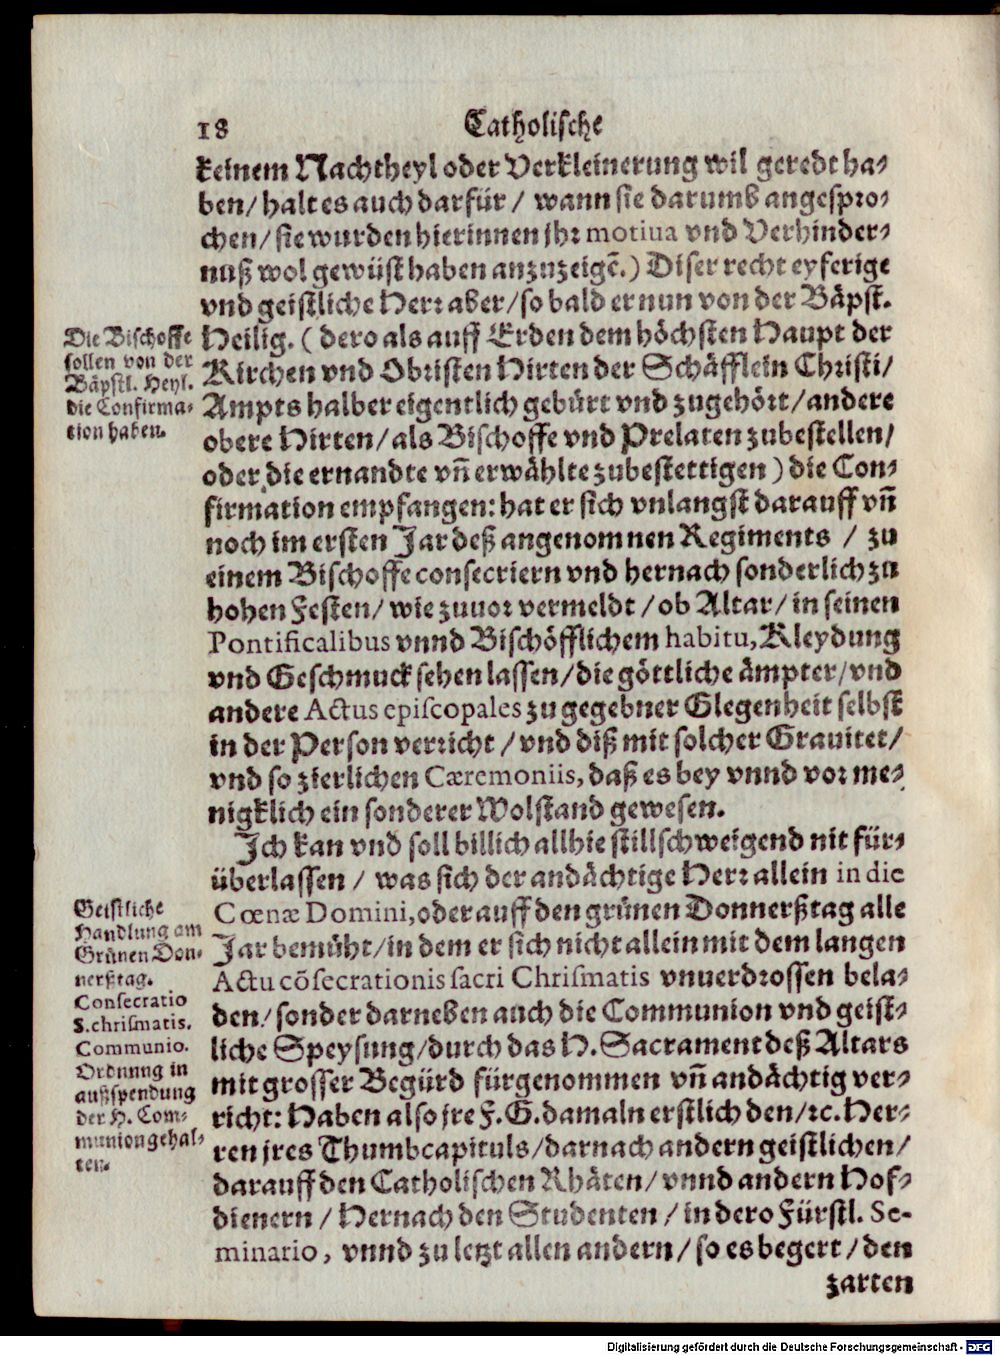 18 Catholische
keinem Nachtheyl oder Verkleinerung wil geredt ha-
ben/ halt es auch darfür / wann sie darumb angespro-
chen/ sie wurden hierinnen jhr motiua vnd Verhinder-
nuß wol gewüst haben anzuzeigẽ.) Diser recht eyferige
vnd geistliche Herr aber/ so bald er nun von der Bäpst.
Heilig. ( dero als auff Erden dem höchsten Haupt der
Kirchen vnd Obristen Hirten der Schäfflein Christi/
Ampts halber eigentlich gebürt vnd zugehört/ andere
obere Hirten/ als Bischoffe vnd Prelaten zubestellen/
oder die ernandte vñ erwählte zubestettigen ) die Con-
firmation empfangen: hat er sich vnlangst darauff vñ
noch im ersten Jar deß angenomnen Regiments / zu
einem Bischoffe consecriern vnd hernach sonderlich zu
hohen Festen/ wie zuuor vermeldt / ob Altar/ in seinen
Pontificalibus vnnd Bischöfflichem habitu, Kleydung
vnd Geschmuck sehen lassen/ die göttliche ämpter/ vnd
andere Actus episcopales zu gegebner Glegenheit selbst
in der Person verricht / vnd diß mit solcher Grauitet/
vnd so zierlichen Cæremoniis, daß es bey vnnd vor me-
nigklich ein sonderer Wolstand gewesen.
Ich kan vnd soll billich allhie stillschweigend nit für-
überlassen / was sich der andächtige Herr allein in die
Cœnæ Domini, oder auff den grünen Donnerßtag alle
Jar bemüht/ in dem er sich nicht allein mit dem langen
Actu cõsecrationis sacri Chrismatis vnuerdrossen bela-
den/ sonder darneben auch die Communion vnd geist-
liche Speysung/ durch das H. Sacrament deß Altars
mit grosser Begürd fürgenommen vñ andächtig ver-
richt: Haben also jre F. G. damaln erstlich den/ ꝛc. Her-
ren jres Thumbcapituls/ darnach andern geistlichen/
darauff den Catholischen Rhäten/ vnnd andern Hof-
dienern / Hernach den Studenten / in dero Fürstl. Se-
minario, vnnd zu letzt allen andern/ so es begert / den
zarten
Die Bischoffe
sollen von der
Bäpstl. Heyl.
die Confirma-
tion haben.
Geistliche
Handlung am
Grünen Don-
nerßtag.
Consecratio
S. chrismatis.
Communio.
Ordnung in
außspendung
der H. Com-
munion gehal-
ten.
Digitalisierung gefördert durch die Deutsche Forschungsgemeinschaft - DFG